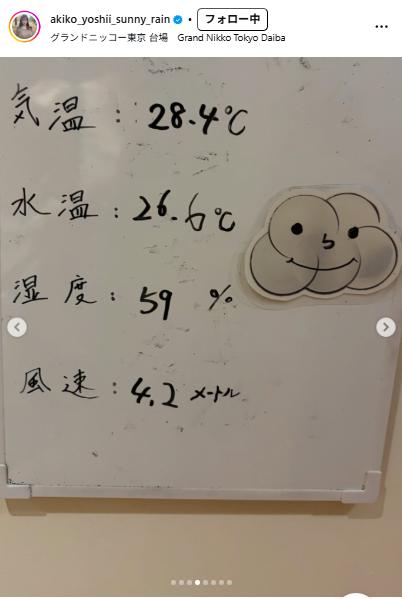 akiko_yoshii_sunny_rain • フォロー中
グランドニッコー東京 台場 Grand Nikko Tokyo Daiba
気温:28.4℃
水温:26.6℃
湿度:59 %
風速:4.2 メートル